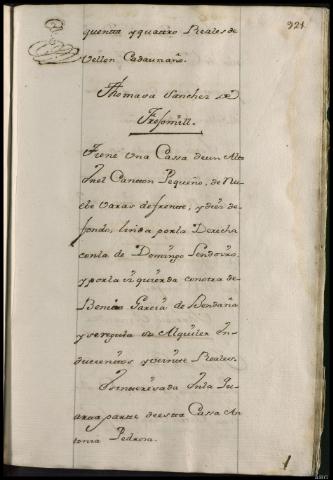 921
quenta y quattro Reales de
Vellon Cada un año.
Thomasa Sanchez de
Fresomill.
Tiene Una Cassa de un Alto
Inel Canton Pequeño, de Nu
ebe varas de frente, y diez de
fondo, linda por la Derecha
con la de Domingo
y por la Yzquierda con otra de
Benito Garcia de Bendaña
y se regula su Alquiler In
ducientos y veinte Reales.
Interesada Inla Qu
arta parte de esta Cassa An
tonia Pedrosa.